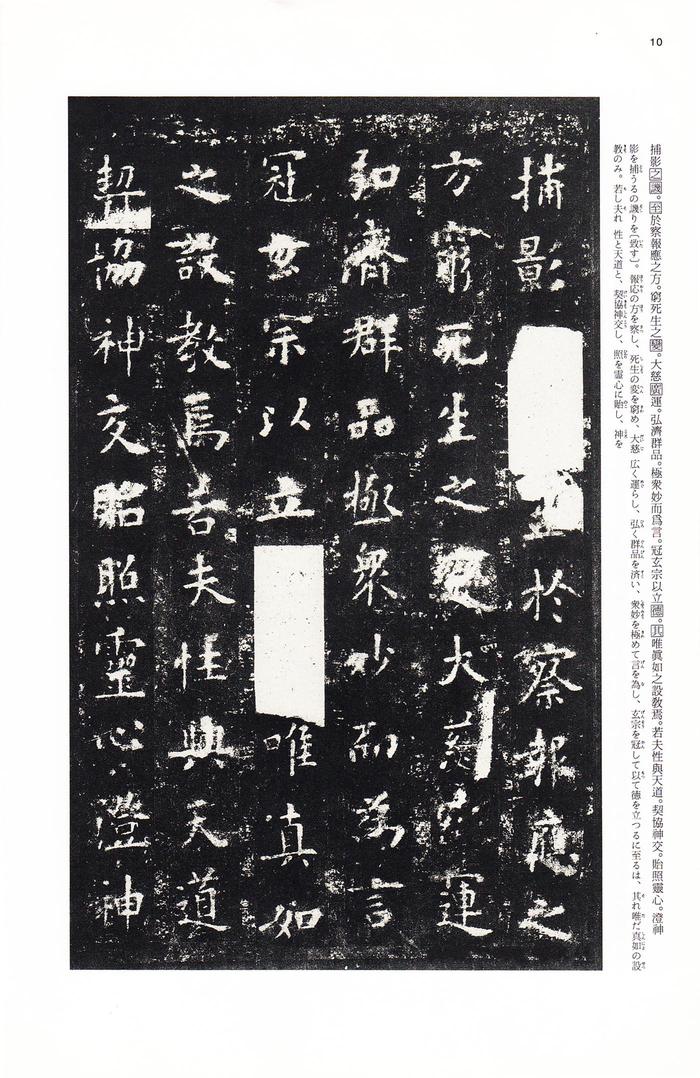 10
捕影之譏。至於察報應之方。窮死生之變。大慈廣運。弘濟群品。極衆妙而爲言。冠玄宗以立德。其唯眞如之設教焉。若夫性與天道。契協神交。貽照靈心。澄神
影を捕うるの譏りを〔致す〕。報応の方を察し、死生の変を窮め、大慈 広く運らし、弘く群品を済い、衆妙を極めて言を為し、玄宗を冠して以て徳を立つるに至るは、其れ唯だ真如の設
教のみ。若し夫れ 性と天道と、契協神交し、照を霊心に貽し、神を
捕影於察報應之
方窮死生之變大慈廣運
弘濟群品極衆妙而爲言
冠玄宗以立唯真如
之設教焉若夫性與天道
契協神交貽照靈心澄神